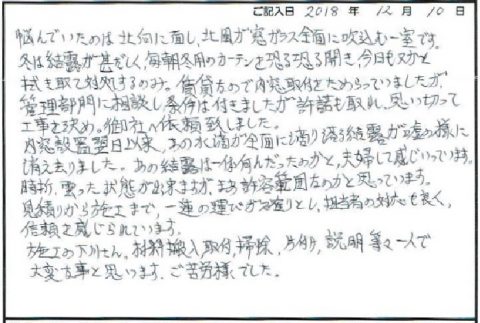 ご記入日 2018 年 12 月 10 日
悩んでいたのは北向に面し、北風が窓ガラス全面に吹込む一室です。
冬は結露が甚だしく、毎朝冬用のカーテンを恐る恐る開き、今日も又かと
拭き取って対処するのみ。賃貸なので内窓取付をためらっていましたが、
管理部門に相談し条件は付きましたが許諾も取れ、思い切って
工事を決め。御社へ依頼致しました。
内窓設置翌日以来、あの水滴が全面に滴り濡る結露が嘘の様に
消え去りました。あの結露は一体何んだったのかと、夫婦して感じいっています。
時折、曇った状態が出来ますが、まあ許容範囲なのかと思っています。
見積りから施工まで、一連の運びがお座りとし、担当者の対応も良く、
信頼を感じられています。
施工の下川さん、材料搬入、取付、掃除、片付け、説明等々一人で
大変な事と思います。ご苦労様でした。